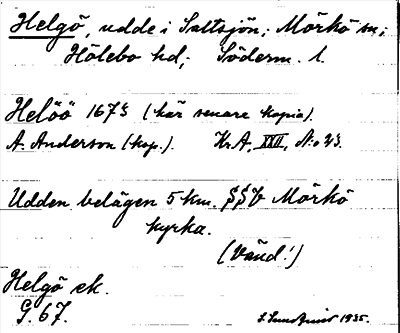 Helgö, udde i Saltsjön; Mörkö sn;
Hölebo hd; Söderm. l.
Helöö 1675 (här senare kopia).
A. Anderson (kop.). Kr.A, XXII, No 23.
Udden belägen 5 km. SSV Mörkö
kyrka.
(Vänd!)
Helgö ek.
G. 67.
1935.